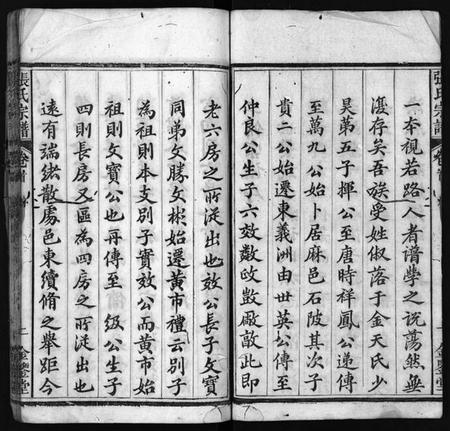 張氏宗譜
卷首
一本視若路人者譜學之說蕩然無
復存矣吾族受姓俶落于金天氏少
昊第五子揮公至唐時祥鳳公遞傳
至萬九公始卜居麻邑石陂其次子
貴二公始遷東義洲由世英公傳至
仲良公生子六效數政敳厰敵此即
老六房之所從出也效公長子文寶
同弟文勝文彬始遷黃市禮云別子
為祖則本支別子實效公而黃市始
祖則文寶公也再傳至 級公生子
四則長房又區為四房之所從出也
遠有端緒散處邑東續脩之舉距今
張氏宗譜
卷首
一
金鑒堂